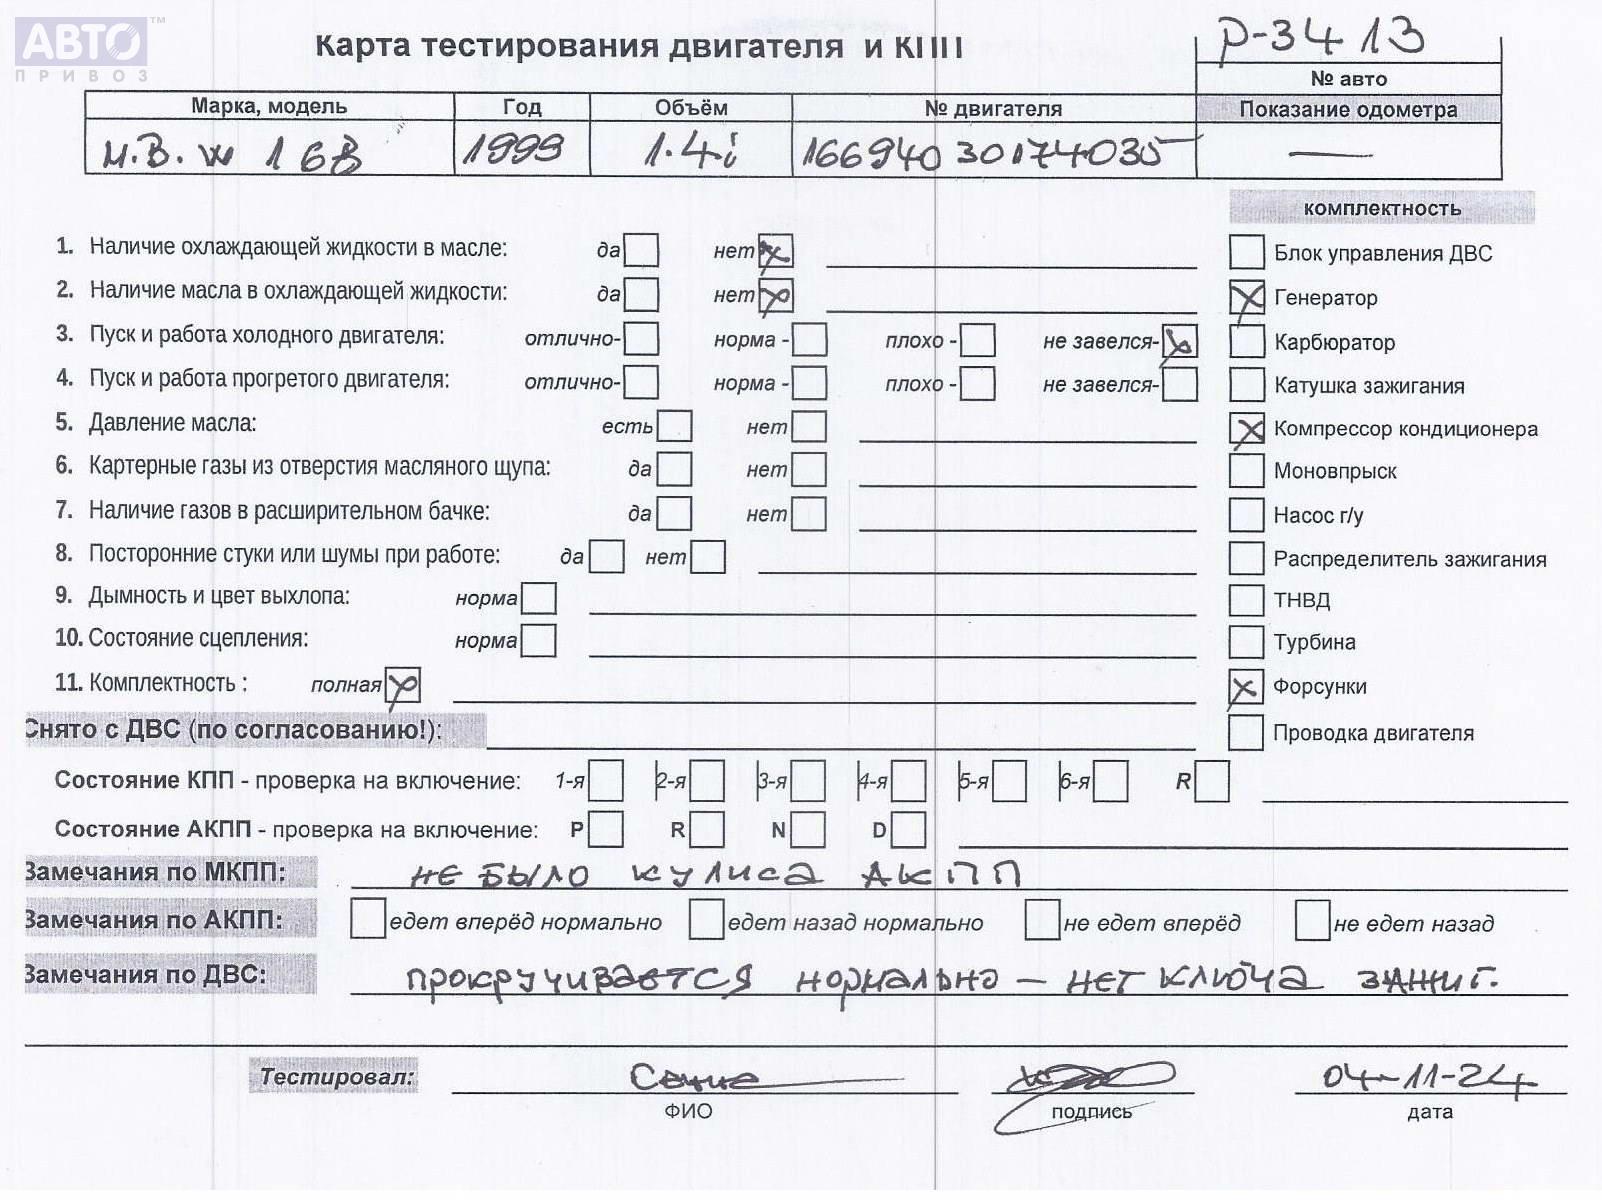 АВТО™
ПРИВОЗ
Карта тестирования двигателя и КПП
Р-3413
№ авто
Марка, модель Год Объём № двигателя Показание одометра
М.В. W 168 1999 1.4i 16694030174035 —
комплектность
1. Наличие охлаждающей жидкости в масле: да нет
Блок управления ДВС
2. Наличие масла в охлаждающей жидкости: да нет
Генератор
3. Пуск и работа холодного двигателя: отлично- норма - плохо - не завелся-
Карбюратор
4. Пуск и работа прогретого двигателя: отлично- норма - плохо - не завелся-
Катушка зажигания
5. Давление масла: есть нет
Компрессор кондиционера
6. Картерные газы из отверстия масляного щупа: да нет
Моновпрыск
7. Наличие газов в расширительном бачке: да нет
Насос г/у
8. Посторонние стуки или шумы при работе: да нет
Распределитель зажигания
9. Дымность и цвет выхлопа: норма
ТНВД
10. Состояние сцепления: норма
Турбина
11. Комплектность : полная
Форсунки
Снято с ДВС (по согласованию!):
Проводка двигателя
Состояние КПП - проверка на включение: 1-я 2-я 3-я 4-я 5-я 6-я R
Состояние АКПП - проверка на включение: P R N D
Замечания по МКПП: не было кулиса АКПП
Замечания по АКПП: едет вперёд нормально едет назад нормально не едет вперёд не едет назад
Замечания по ДВС: прокручивается нормально — нет ключа зажиг.
Тестировал: 04-11-24
ФИО подпись дата